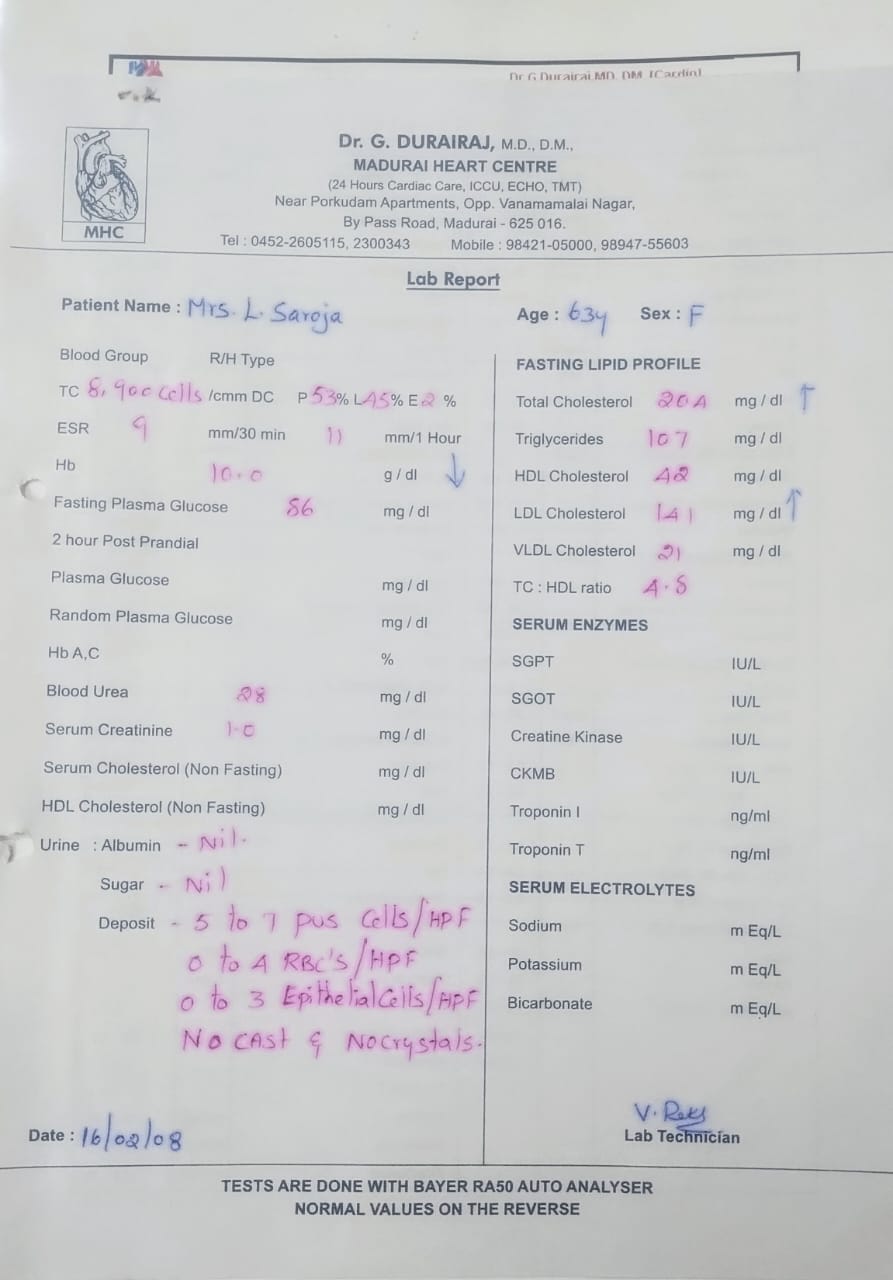 Dr G Durairaj MD. DM. (Cardio)
Dr. G. DURAIRAJ, M.D., D.M.,
MADURAI HEART CENTRE
(24 Hours Cardiac Care, ICCU, ECHO, TMT)
Near Porkudam Apartments, Opp. Vanamamalai Nagar,
By Pass Road, Madurai - 625 016.
Tel : 0452-2605115, 2300343 Mobile : 98421-05000, 98947-55603
MHC
Lab Report
Patient Name : Mrs. L. Saroja Age : 63y Sex : F
Blood Group R/H Type
TC 8,900 cells /cmm DC P 53% L 45% E 2 %
ESR 9 mm/30 min 11 mm/1 Hour
Hb 10.0 g / dl ↓
Fasting Plasma Glucose 86 mg / dl
2 hour Post Prandial
Plasma Glucose mg / dl
Random Plasma Glucose mg / dl
Hb A,C %
Blood Urea 28 mg / dl
Serum Creatinine 1.0 mg / dl
Serum Cholesterol (Non Fasting) mg / dl
HDL Cholesterol (Non Fasting) mg / dl
Urine : Albumin - Nil.
Sugar - Nil
Deposit - 5 to 7 pus cells/HPF
0 to 4 RBC's/HPF
0 to 3 Epithelial Cells/HPF
No cast & No crystals.
FASTING LIPID PROFILE
Total Cholesterol 204 mg / dl ↑
Triglycerides 107 mg / dl
HDL Cholesterol 42 mg / dl
LDL Cholesterol 141 mg / dl ↑
VLDL Cholesterol 21 mg / dl
TC : HDL ratio 4.8
SERUM ENZYMES
SGPT IU/L
SGOT IU/L
Creatine Kinase IU/L
CKMB IU/L
Troponin I ng/ml
Troponin T ng/ml
SERUM ELECTROLYTES
Sodium m Eq/L
Potassium m Eq/L
Bicarbonate m Eq/L
Date : 16/02/08
Lab Technician
TESTS ARE DONE WITH BAYER RA50 AUTO ANALYSER
NORMAL VALUES ON THE REVERSE